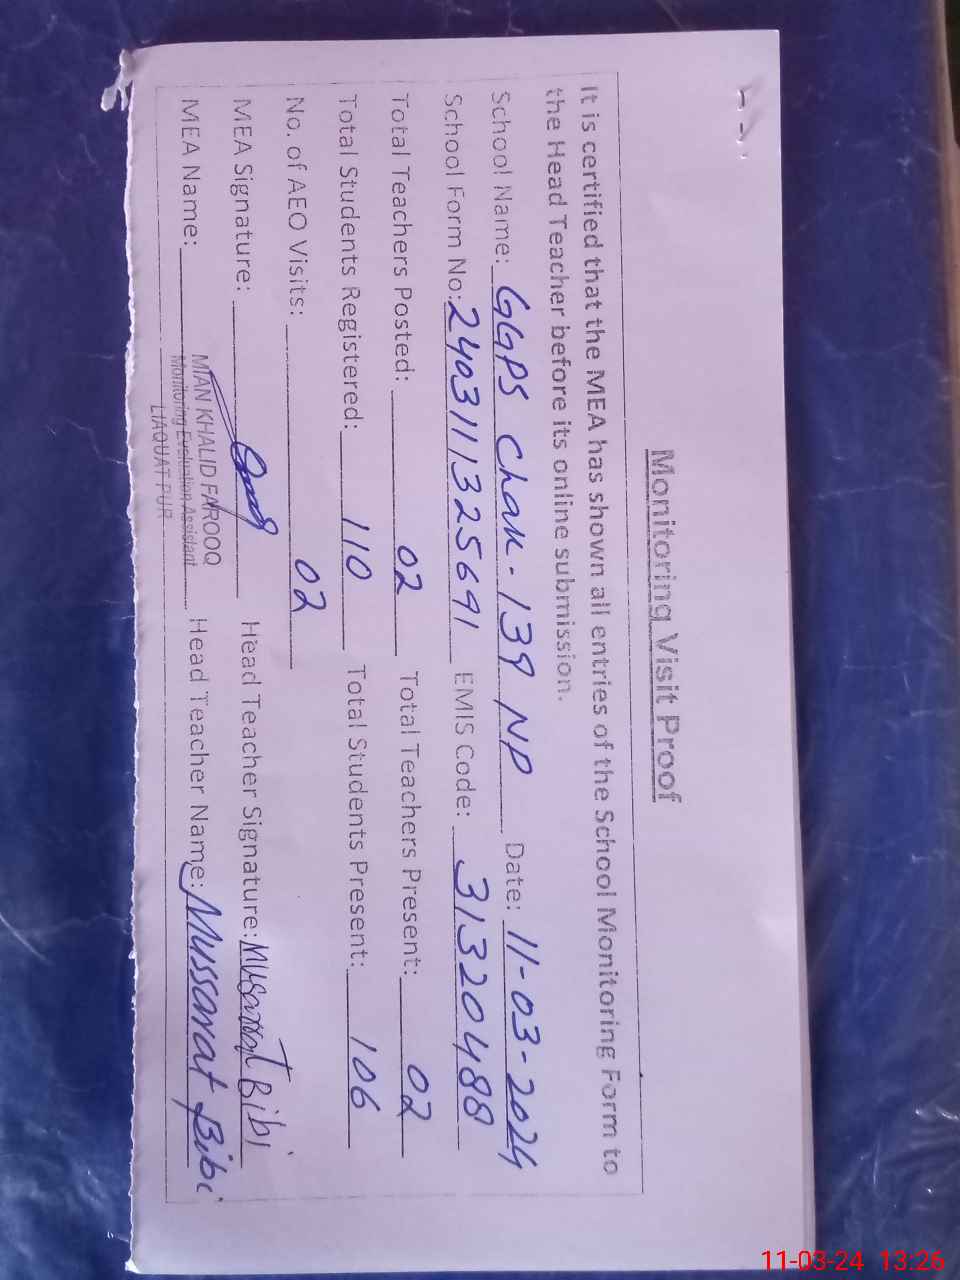 Monitoring Visit Proof
It is certified that the MEA has shown all entries of the School Monitoring Form to
the Head Teacher before its online submission.
School Name: GGPS Chak-139 NP Date: 11-03-2024
School Form No: 24031113256 91 EMIS Code: 31320488
Total Teachers Posted: 02 Total Teachers Present: 02
Total Students Registered: 110 Total Students Present: 106
No. of AEO Visits: 02
MEA Signature: Head Teacher Signature: Musarrat Bibi
MEA Name: MIAN KHALID FAROOQ Head Teacher Name: Mussarat Bibi
Monitoring Evaluation Assistant
LIAQUAT PUR
11-03-24 13:26